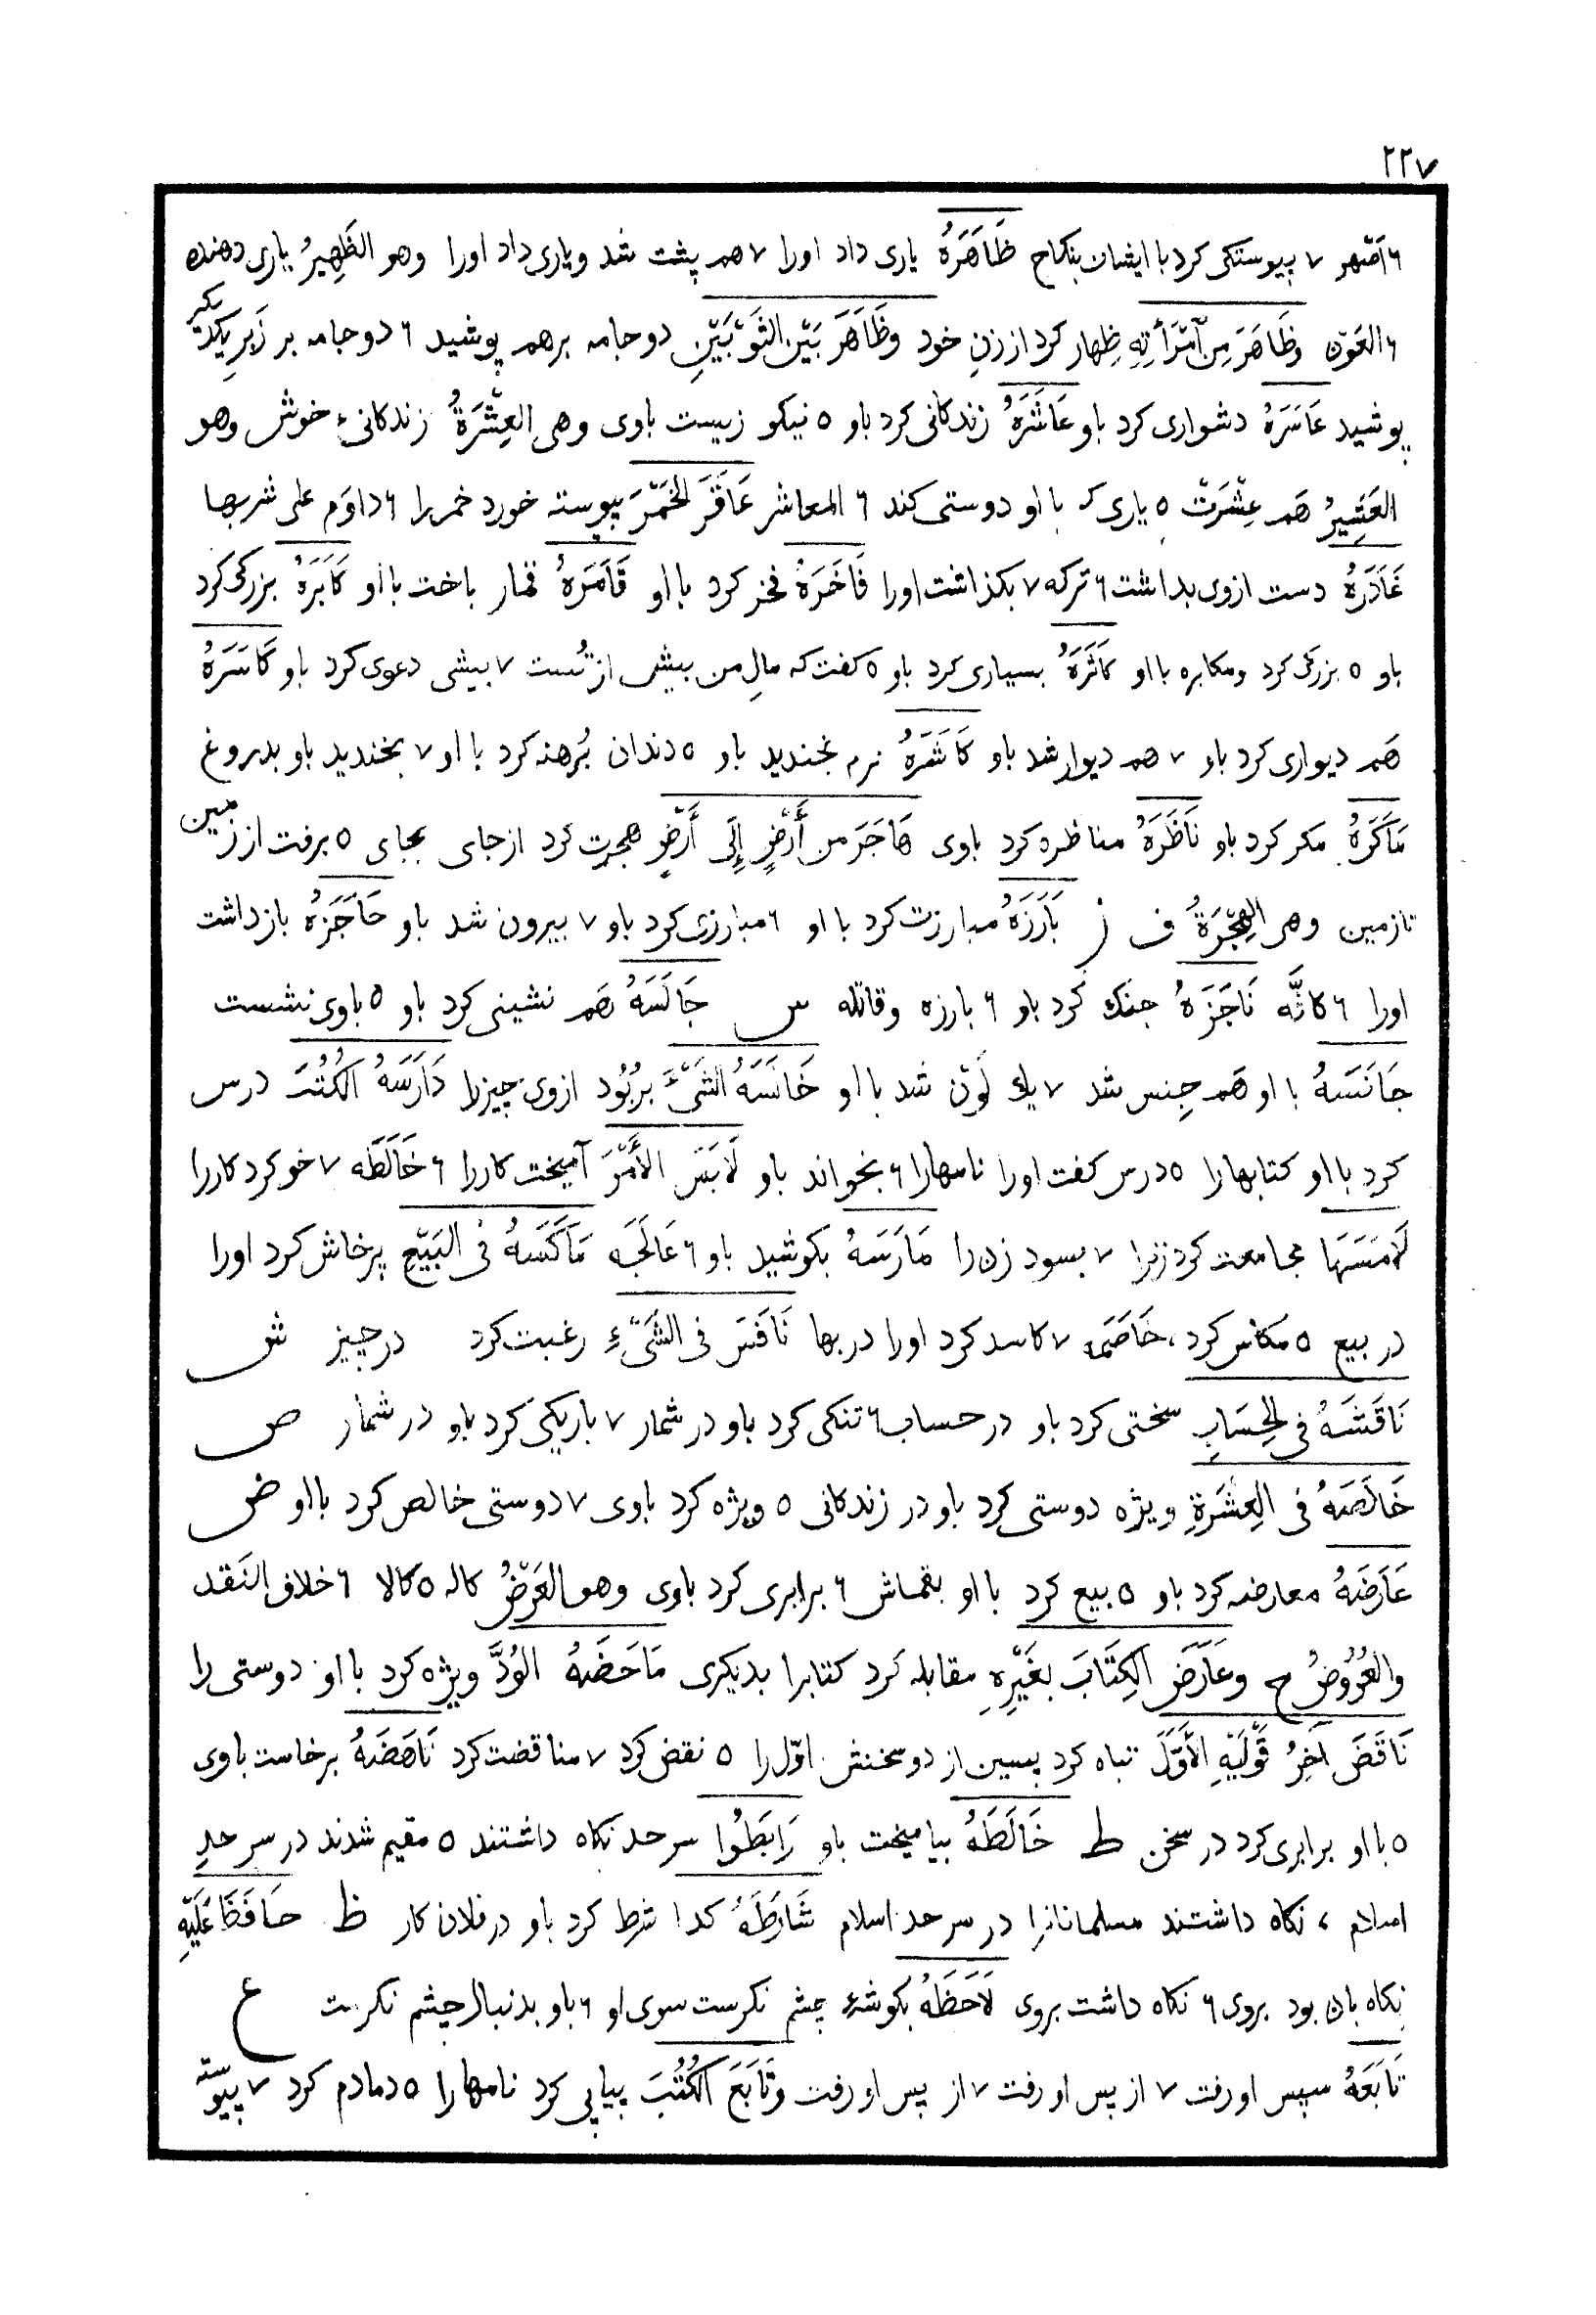 ۲۲۷
۶ اَصْهر ۷ پیوستکی کرد با ایشان بنکاح ظَاهَرَهُ یاری داد اورا ۷ هم پشت شد ویاری داد اورا وهو الظَهِیرُ یاری دهنده
۶ العَوْن وظَاهَرَ مِنْ اَمْرَأتِهِ ظِهار کرد از زنِ خود وظَاهَرَ بَیْن الثَوْبَیْنِ دو جامه برهم پوشید ۶ دو جامه بر زَبرِ یکدیکر
پوشید عَاسَرَهُ دشواری کرد باو عَاشَرَهُ زندکانی کرد باو ۵ نیکو زیست باوی وهی العِشْرَةُ زندکانیء خوش وهو
العَشِیرُ هَم عِشْرَتْ ۵ یاری که با او دوستی کند ۶ المعاشر عَاقَرَ الخَمْرَ پیوسته خورد خمر را ۶ داوَم علی شربها
غَادَرَهُ دست ازوی بداشت ۶ ترکه ۷ بکذاشت اورا فَاخَرَهُ فخر کرد با او قَامَرَهُ قمار باخت با او کَابَرَهُ بزرکی کرد
باو ۵ بزرکی کرد ومکابره با او کَاثَرَهُ بسیاری کرد باو ۵ کفت که مالِ من بیش از تُست ۷ بیشی دعوی کرد باو کَاسَرَهُ
هَم دیواری کرد باو ۷ هم دیوار شد باو کَاشَرَهُ نرم بخندید باو ۵ دندان بُرهنه کرد با او ۷ بخندید باو بدروغ
مَاکَرَهُ مکر کرد باو نَاظَرَهُ مناظره کرد باوی هَاجَرَ من أَرْضٍ إِلَى أَرْضٍ هجرت کرد ازجای بجای ۵ برفت از زمین
تازمین وهی الهِجْرَةُ ف ز بَارَزَهُ مبارزت کرد با او ۶ مبارزی کرد باو ۷ بیرون شد باو حَاجَزَهُ بازداشت
اورا ۶ کافّه نَاجَزَهُ جنك کرد باو ۶ بارزه وقاتله س جَالَسَهُ هَم نشینی کرد باو ۵ باوی نشست
جَانَسَهُ با او هَم جِنس شد ۷ یك لَوْن شد با او خَالَسَهُ الشَیْءَ برُبُود ازوی چیز را دَارَسَهُ الکُتُبَ درس
کرد با او کتابهارا ۵ درس کفت اورا نامهارا ۶ بخواند باو لَابَسَ الأَمْرَ آمیخت کاررا ۶ خَالَطَه ۷ خو کرد کاررا
لَامَسَهَا مجامعت کرد زنرا ۷ بسود زن را مَارَسَهُ بکوشید باو ۶ عَالَجَه مَاکَسَهُ فی البَیْعِ پرخاش کرد اورا
در بیع ۵ مکاس کرد، خَاصَمَه ۷ کاسد کرد اورا دربها نَافَسَ فی الشَیْءِ رغبت کرد درچیز ش
نَاقَشَهُ فی الحِسَابِ سختی کرد باو در حساب ۶ تنکی کرد باو در شمار ۷ باریکی کرد باو در شمار ص
خَالَصَهُ فی العِشْرَةِ ویژه دوستی کرد باو در زندکانی ۵ ویژه کرد باوی ۷ دوستی خالص کرد با او ض
عَارَضَهُ معارضه کرد باو ۵ بیع کرد با او بقماش ۶ برابری کرد باوی وهو العَرْضُ کاله ۵ کالا ۶ خلاف النَقد
والعُرُوضُ ج وعَارَضَ الکِتَابَ بغَیْرِهِ مقابله کرد کتابرا بدیکری مَاحَضَهُ الوُدَّ ویژه کرد با او دوستی را
نَاقَضَ آخِرُ قَوْلَیْهِ الأَوَّلَ تباه کرد پسین از دو سخنش اوّل را ۵ نقض کرد ۷ مناقضت کرد نَاهَضَهُ برخاست باوی
۵ با او برابری کرد در سخن ط خَالَطَهُ بیامیخت باو رَابَطُوا سرحد نکاه داشتند ۵ مقیم شدند در سر حدِ
اسلام ۶ نکاه داشتند مسلمانانرا در سر حد اسلام شَارَطَهُ کذا شرط کرد باو در فلان کار ظ حَافَظَ عَلَیْهِ
نکاه بان بود بروی ۶ نکاه داشت بروی لَاحَظَهُ بکوشهٔ چشم نکرست سوی او ۶ باو بدنبال چشم نکرست ع
تَابَعَهُ سپس او رفت ۷ از پس او رفت ۷ از پس او رفت وتَابَعَ الکُتُبَ پیاپی کرد نامهارا ۵ دمادم کرد ۷ پیوسته